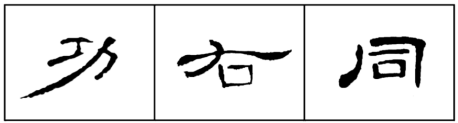 功右同